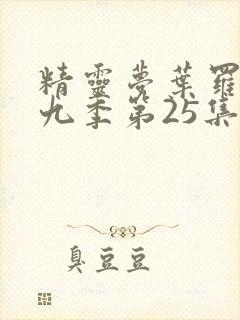 精靈夢葉羅
九季第25集
臭豆豆